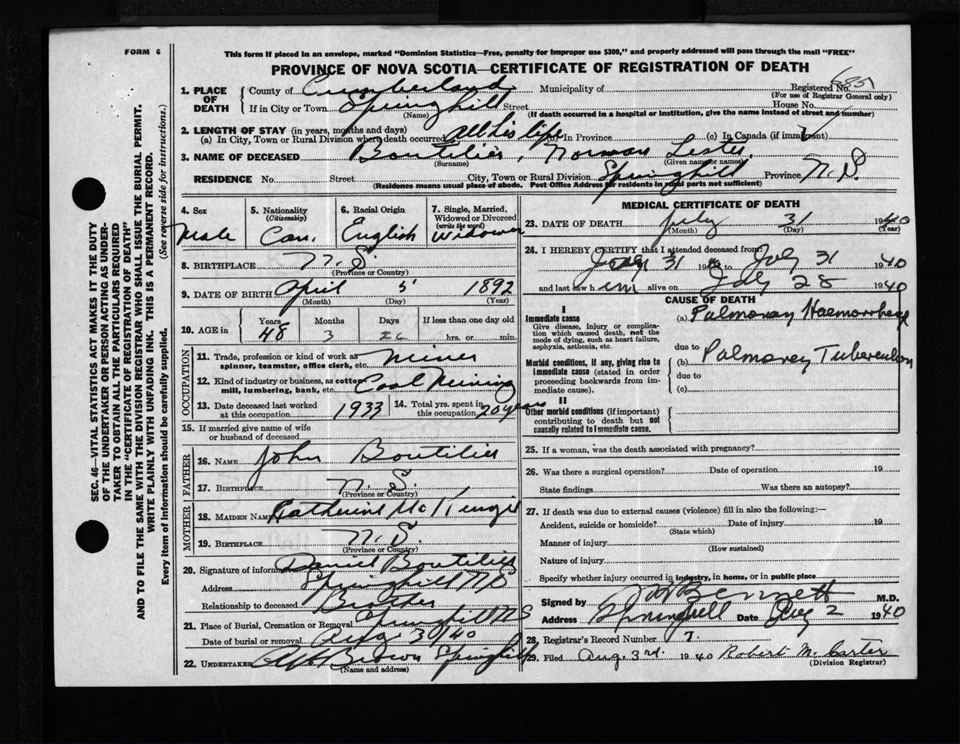 FORM 6
This form if placed in an envelope, marked "Dominion Statistics—Free, penalty for improper use $300," and properly addressed will pass through the mail "FREE"
PROVINCE OF NOVA SCOTIA—CERTIFICATE OF REGISTRATION OF DEATH
SEC. 46—VITAL STATISTICS ACT MAKES IT THE DUTY
OF THE UNDERTAKER OR PERSON ACTING AS UNDER-
TAKER TO OBTAIN ALL THE PARTICULARS REQUIRED
IN THE "CERTIFICATE OF REGISTRATION OF DEATH"
AND TO FILE THE SAME WITH THE DIVISION REGISTRAR WHO SHALL ISSUE THE BURIAL PERMIT.
WRITE PLAINLY WITH UNFADING INK. THIS IS A PERMANENT RECORD.
Every item of information should be carefully supplied. (See reverse side for instructions.)
1. PLACE OF DEATH County of Cumberland Municipality of Registered No.
(For use of Registrar General only)
If in City or Town Springhill Street House No.
(Name) (If death occurred in a hospital or institution, give the name instead of street and number)
2. LENGTH OF STAY (in years, months and days)
(a) In City, Town or Rural Division where death occurred all his life (b) In Province (c) In Canada (if immigrant)
3. NAME OF DECEASED Boutilier, Norman Lester
(Surname) (Given name or names)
RESIDENCE No. Street City, Town or Rural Division Springhill Province N.S.
(Residence means usual place of abode. Post Office Address for residents in rural parts not sufficient)
4. Sex Male
5. Nationality (Citizenship) Can.
6. Racial Origin English
7. Single, Married, Widowed or Divorced (write the word) Widower
8. BIRTHPLACE N.S.
(Province or Country)
9. DATE OF BIRTH April 5 1892
(Month) (Day) (Year)
10. AGE in Years Months Days If less than one day old
48 3 26 hrs. or min.
OCCUPATION
11. Trade, profession or kind of work as Miner
spinner, teamster, office clerk, etc.
12. Kind of industry or business, as cotton Coal Mining
mill, lumbering, bank, etc.
13. Date deceased last worked at this occupation 1933
14. Total yrs. spent in this occupation 20 years
15. If married give name of wife
or husband of deceased
FATHER
16. NAME John Boutilier
17. BIRTHPLACE N.S.
(Province or Country)
MOTHER
18. MAIDEN NAME Catherine McKenzie
19. BIRTHPLACE N.S.
(Province or Country)
20. Signature of informant Daniel Boutilier
Address Springhill N.S.
Relationship to deceased Brother
21. Place of Burial, Cremation or Removal Springhill N.S.
Date of burial or removal 30/40
22. UNDERTAKER Brown Springhill
(Name and address)
MEDICAL CERTIFICATE OF DEATH
23. DATE OF DEATH July 31 1940
(Month) (Day) (Year)
24. I HEREBY CERTIFY that I attended deceased from:
31 to July 31 1940
and last saw him alive on July 28 1940
CAUSE OF DEATH
I
Immediate cause
Give disease, injury or complica-
tion which caused death, not the
mode of dying, such as heart failure,
asphyxia, asthenia, etc.
(a) Pulmonary Haemorrhage
due to
Morbid conditions, if any, giving rise to
immediate cause (stated in order
proceeding backwards from im-
mediate cause).
(b) Pulmonary Tuberculosis
due to
(c)
II
Other morbid conditions (if important)
contributing to death but not
causally related to immediate cause.
25. If a woman, was the death associated with pregnancy?
26. Was there a surgical operation? Date of operation 19
State findings Was there an autopsy?
27. If death was due to external causes (violence) fill in also the following:—
Accident, suicide or homicide? Date of injury 19
(State which)
Manner of injury
(How sustained)
Nature of injury
Specify whether injury occurred in industry, in home, or in public place
Signed by Bennett M.D.
Address Springhill Date Aug 2 1940
28. Registrar's Record Number 7.
29. Filed Aug. 3rd. 1940 Robert M. Carter
(Division Registrar)